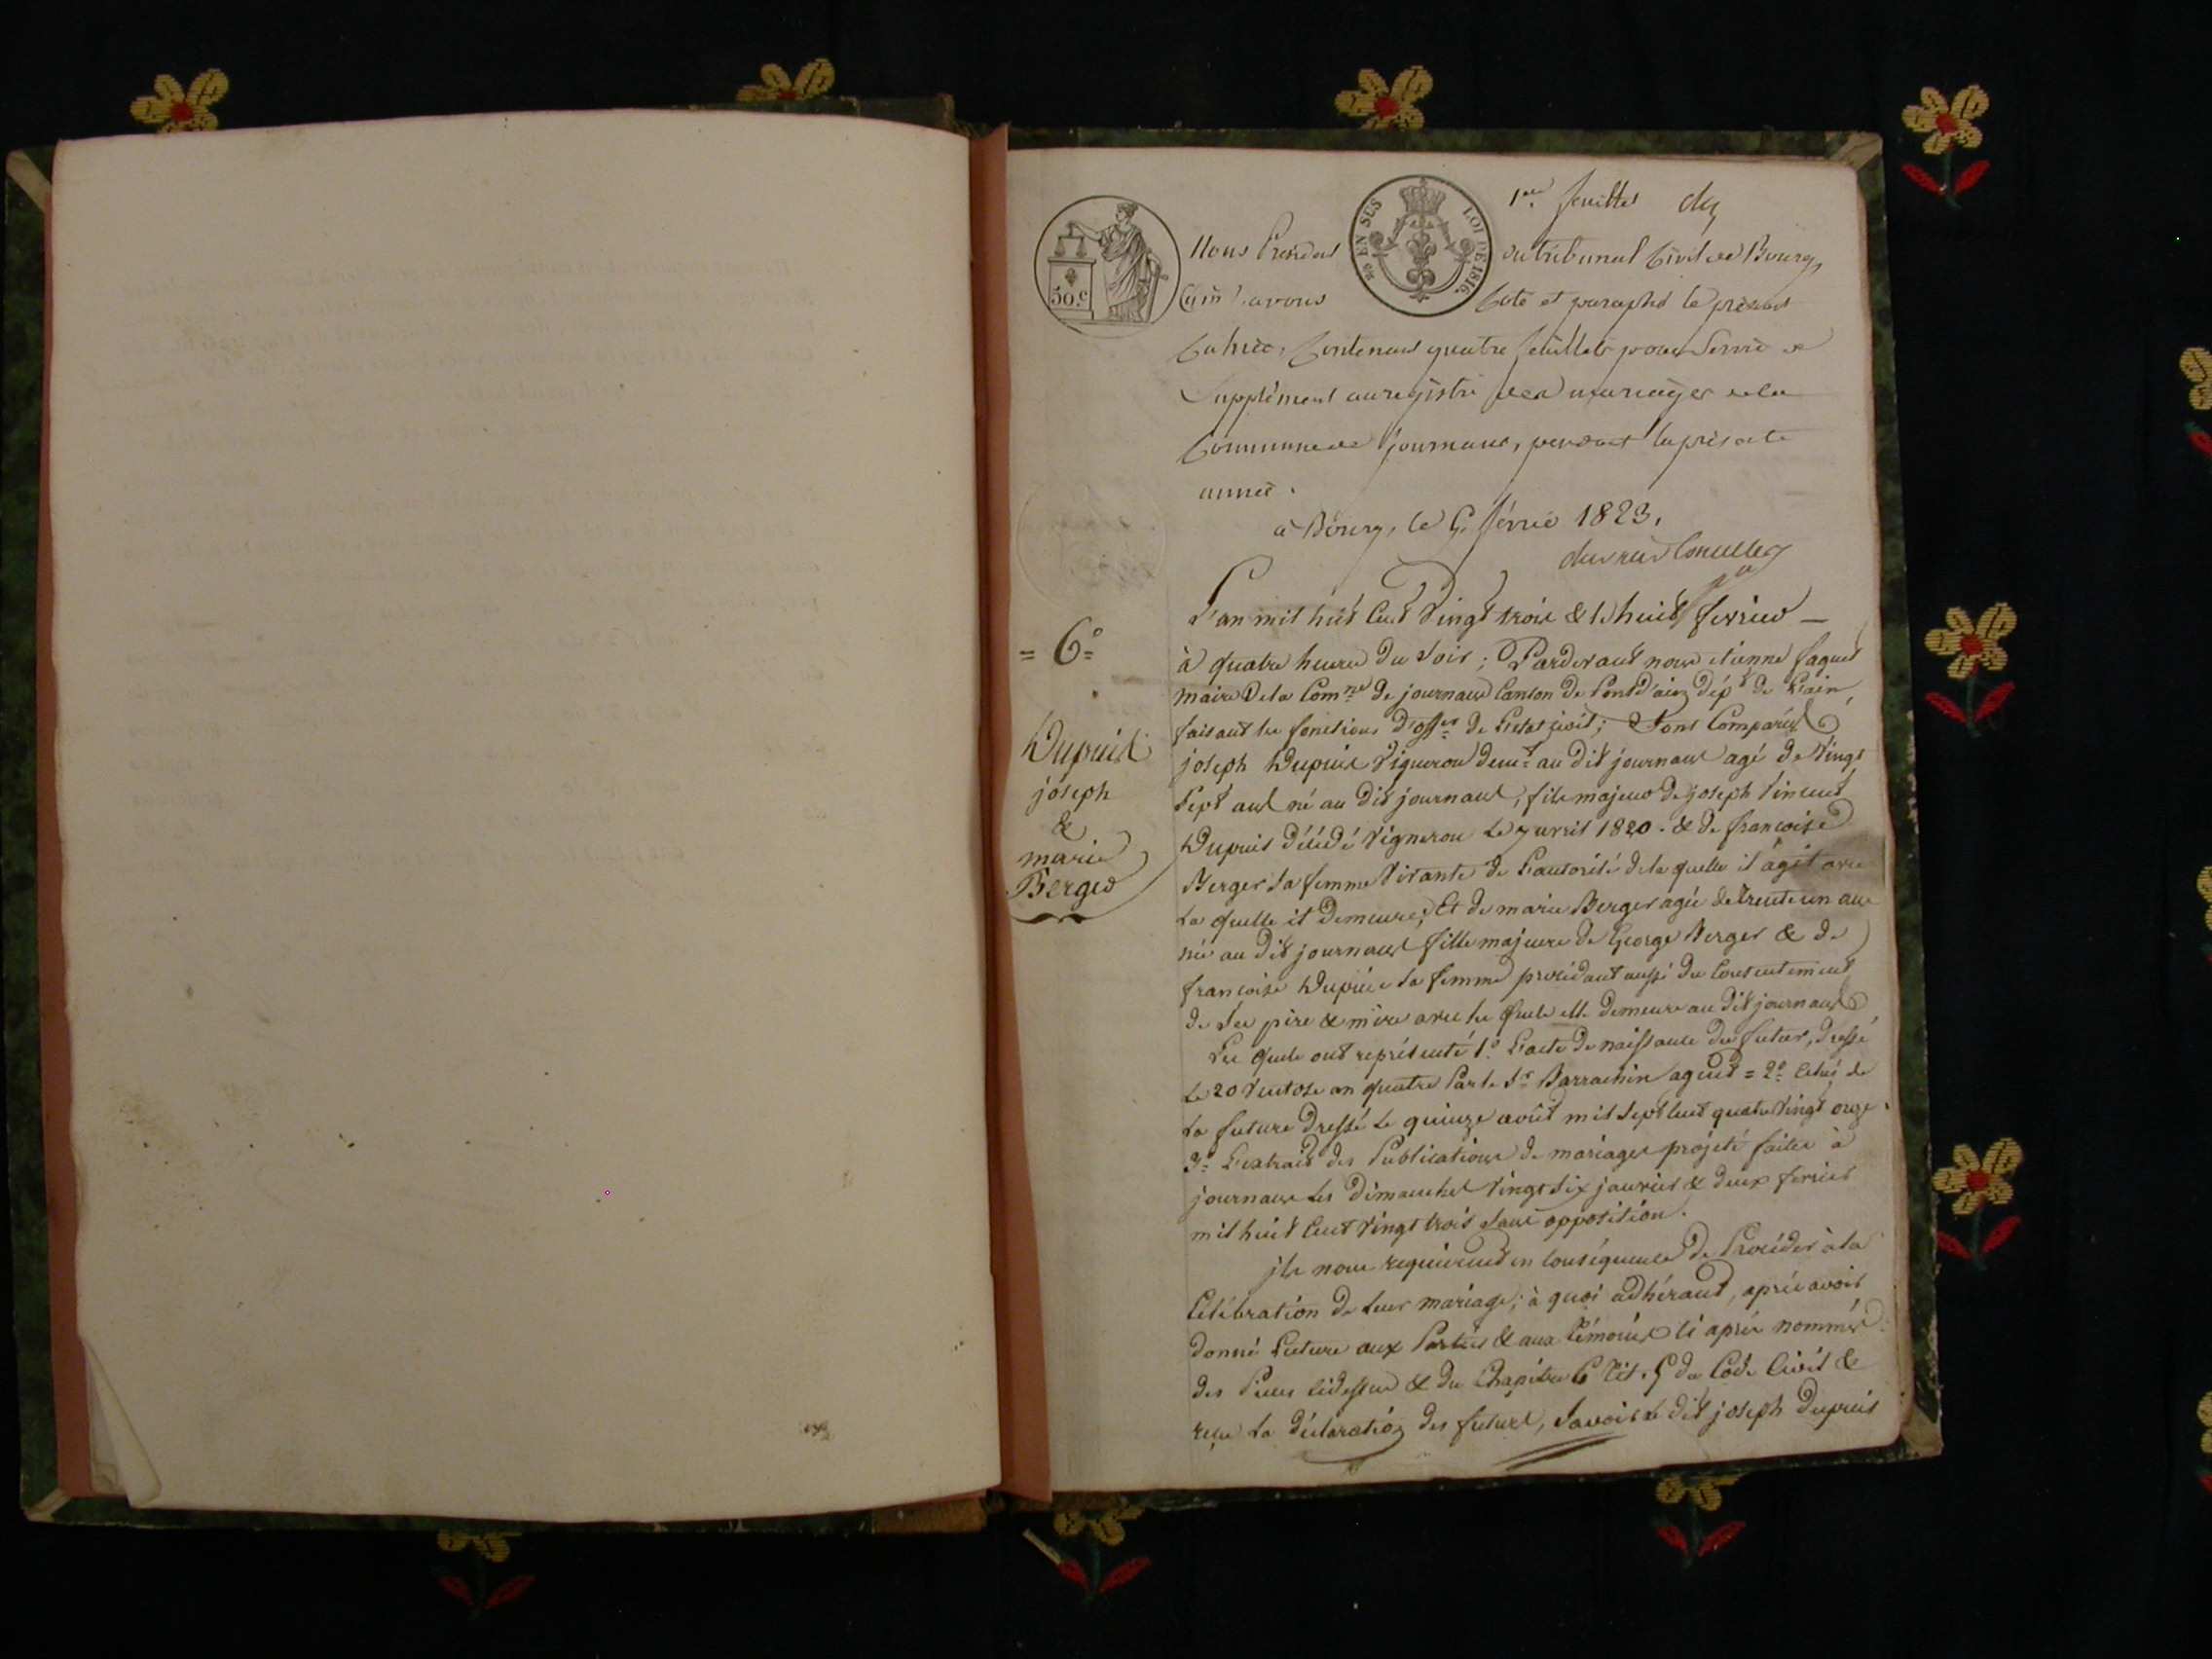 1er feuillet
50.c
EN SUS LOI DE 1816.
Nous Président du tribunal Civil de Bourg
avons Coté et paraphé le présent
Cahier, Contenant quatre feuillets pour Servir de
Supplément au registre des mariages de la
Commune de journans, pendant la présente
année.
à Bourg, le 5 février 1823.
= 6e =
Dupuis
joseph
&
marie
Berger
L'an mil huit Cent Vingt trois & le huit fevrier —
à quatre heures du Soir ; Pardevant nous etienne faguet
maire De la Comne de journans Canton de Pont d'ain dépt de L'ain,
faisant les fonctions D'offer de L'etat civil ; Sont Comparus
joseph Dupuis Vigneron demt au Dit journans agé de Vingt
Sept ans né au Dit journans, fils majeur de joseph Vincent
Dupuis Décédé Vigneron Le 7 avril 1820. & de francoise
Berger Sa femme Vivante de L'autorité de la quelle il agit avec
La quelle il Demeure ; Et de marie Berger agée de Trente un ans
née au Dit journans fille majeure de George Berger & de
francoise Dupuis Sa femme procédant aussi du Consentement
de Ses père & mère avec les quels elle Demeure au Dit journans
Les quels ont représenté 1o. L'acte De naissance du futur, Dressé
Le 20 Ventose an quatre Par le Sr Barrachin agent = 2o. Celui de
La future Dressé Le quinze août mil Sept Cent quatre Vingt onze.
3o. L'extrait des Publications de mariages projeté faites à
journans Les Dimanches Vingt Six janvier & deux fevrier
mil huit Cent Vingt trois Sans opposition.
ils nous requièrent en Conséquence de Procéder à la
Célébration de Leur mariage ; à quoi adhérant, après avoir
donné Lecture aux Parties & aux témoins Ci après nommés
des Pièces Cidessus & du Chapitre 6 tit. 5 du Code Civil &
reçu La déclaration des futurs, Savoir Le dit joseph dupuis